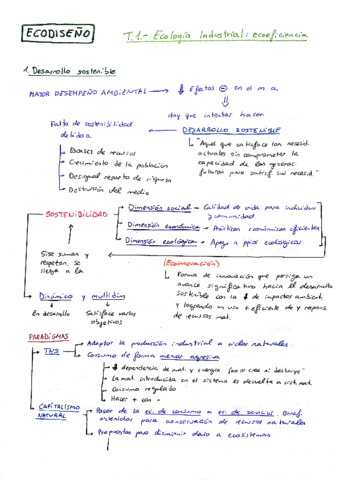 ECODISEÑO
T.1.- Ecología Industrial: ecoeficiencia
1. Desarrollo sostenible
MAYOR DESEMPEÑO AMBIENTAL → ↓ Efectos ⊖ en el m.a.
Hay que intentar hacer
DESARROLLO SOSTENIBLE
Falta de sostenibilidad
debido a
Escases de recursos
Crecimiento de la población
Desigual reparto de riqueza
Destrucción del medio
"Aquel que satisface las necesid.
actuales sin comprometer la
capacidad de las generac.
futuras para satisf. sus necesid."
SOSTENIBILIDAD
Dimensión social → Calidad de vida para individuo
y comunidad.
Dimensión económica → Prácticas económicas eficientes
Dimensión ecológica → Apoyo a ppios ecológicos
Si se suman y
respetan, se
llega a la
(Ecoinnovación)
Forma de innovación que persigue un
avance significativo hacia el desarrollo
sostenible con la ↓ de impactos ambient.
y logrando un uso + eficiente de y respons.
de recursos nat.
Dinámico y multidim
En desarrollo
Satisface varios
objetivos
PARADIGMAS
TNS
Adaptar la producción industrial a ciclos naturales.
Consumo de forma menos agresiva
↓ dependencia de mat. y energía (no se crea ni destruye)
La mat. introducida en el sistema es devuelta a sist. nat.
Consumo regulado
Hacer + con -
CAPITALISMO
NATURAL
Pasar de la ec. de consumo a ec. de servicios. Benef.
obtenidos para conservación de recursos naturales
Propuestas para disminuir daño a ecosistemas